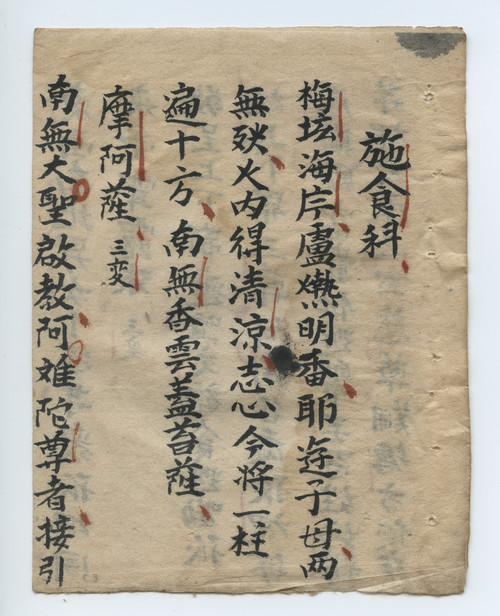 施食科
梅坛海岸盧爇明香耶迋子母两
無殃火内得清涼志心今将一柱
遍十方南無香雲蓋苔薩
摩阿薩三变
南無大聖啟教阿难陀尊者接引